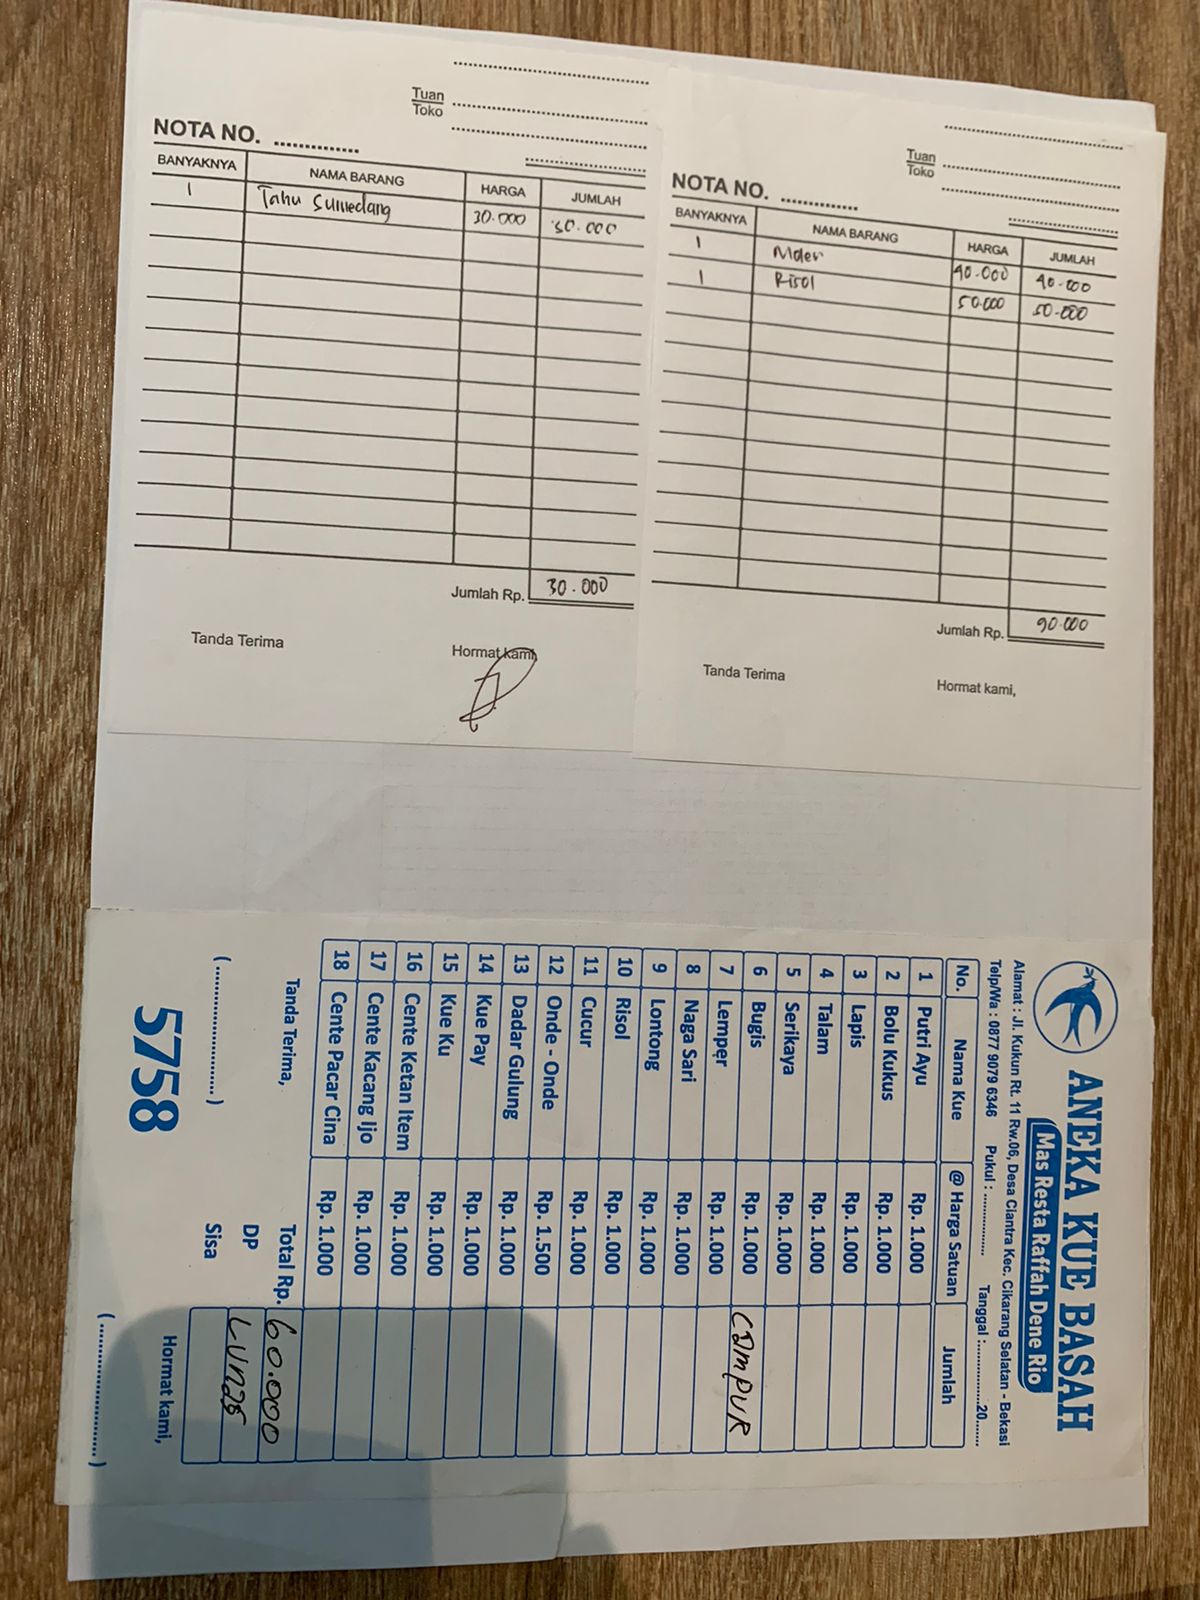 Tuan
Toko
NOTA NO.
BANYAKNYA NAMA BARANG HARGA JUMLAH
1 Tahu Sumedang 30.000 30.000
Jumlah Rp. 30.000
Tanda Terima Hormat kami,
Tuan
Toko
NOTA NO.
BANYAKNYA NAMA BARANG HARGA JUMLAH
1 40.000 40.000
1 Risol 50.000 50.000
Jumlah Rp. 90.000
Tanda Terima Hormat kami,
ANEKA KUE BASAH
Mas Resta Raffah Dene Rio
Alamat : Jl. Kukun Rt. 11 Rw.06, Desa Ciantra Kec. Cikarang Selatan - Bekasi
Telp/Wa : 0877 9079 6346 Pukul : ................ Tanggal :..................20......
No. Nama Kue @ Harga Satuan Jumlah
1 Putri Ayu Rp. 1.000
2 Bolu Kukus Rp. 1.000
3 Lapis Rp. 1.000
4 Talam Rp. 1.000
5 Serikaya Rp. 1.000
6 Bugis Rp. 1.000 CAMPUR
7 Lemper Rp. 1.000
8 Naga Sari Rp. 1.000
9 Lontong Rp. 1.000
10 Risol Rp. 1.000
11 Cucur Rp. 1.000
12 Onde - Onde Rp. 1.500
13 Dadar Gulung Rp. 1.000
14 Kue Pay Rp. 1.000
15 Kue Ku Rp. 1.000
16 Cente Ketan Item Rp. 1.000
17 Cente Kacang Ijo Rp. 1.000
18 Cente Pacar Cina Rp. 1.000
Total Rp. 60.000
Tanda Terima,
DP LUNAS
Sisa
Hormat kami,
(........................)
(........................)
5758